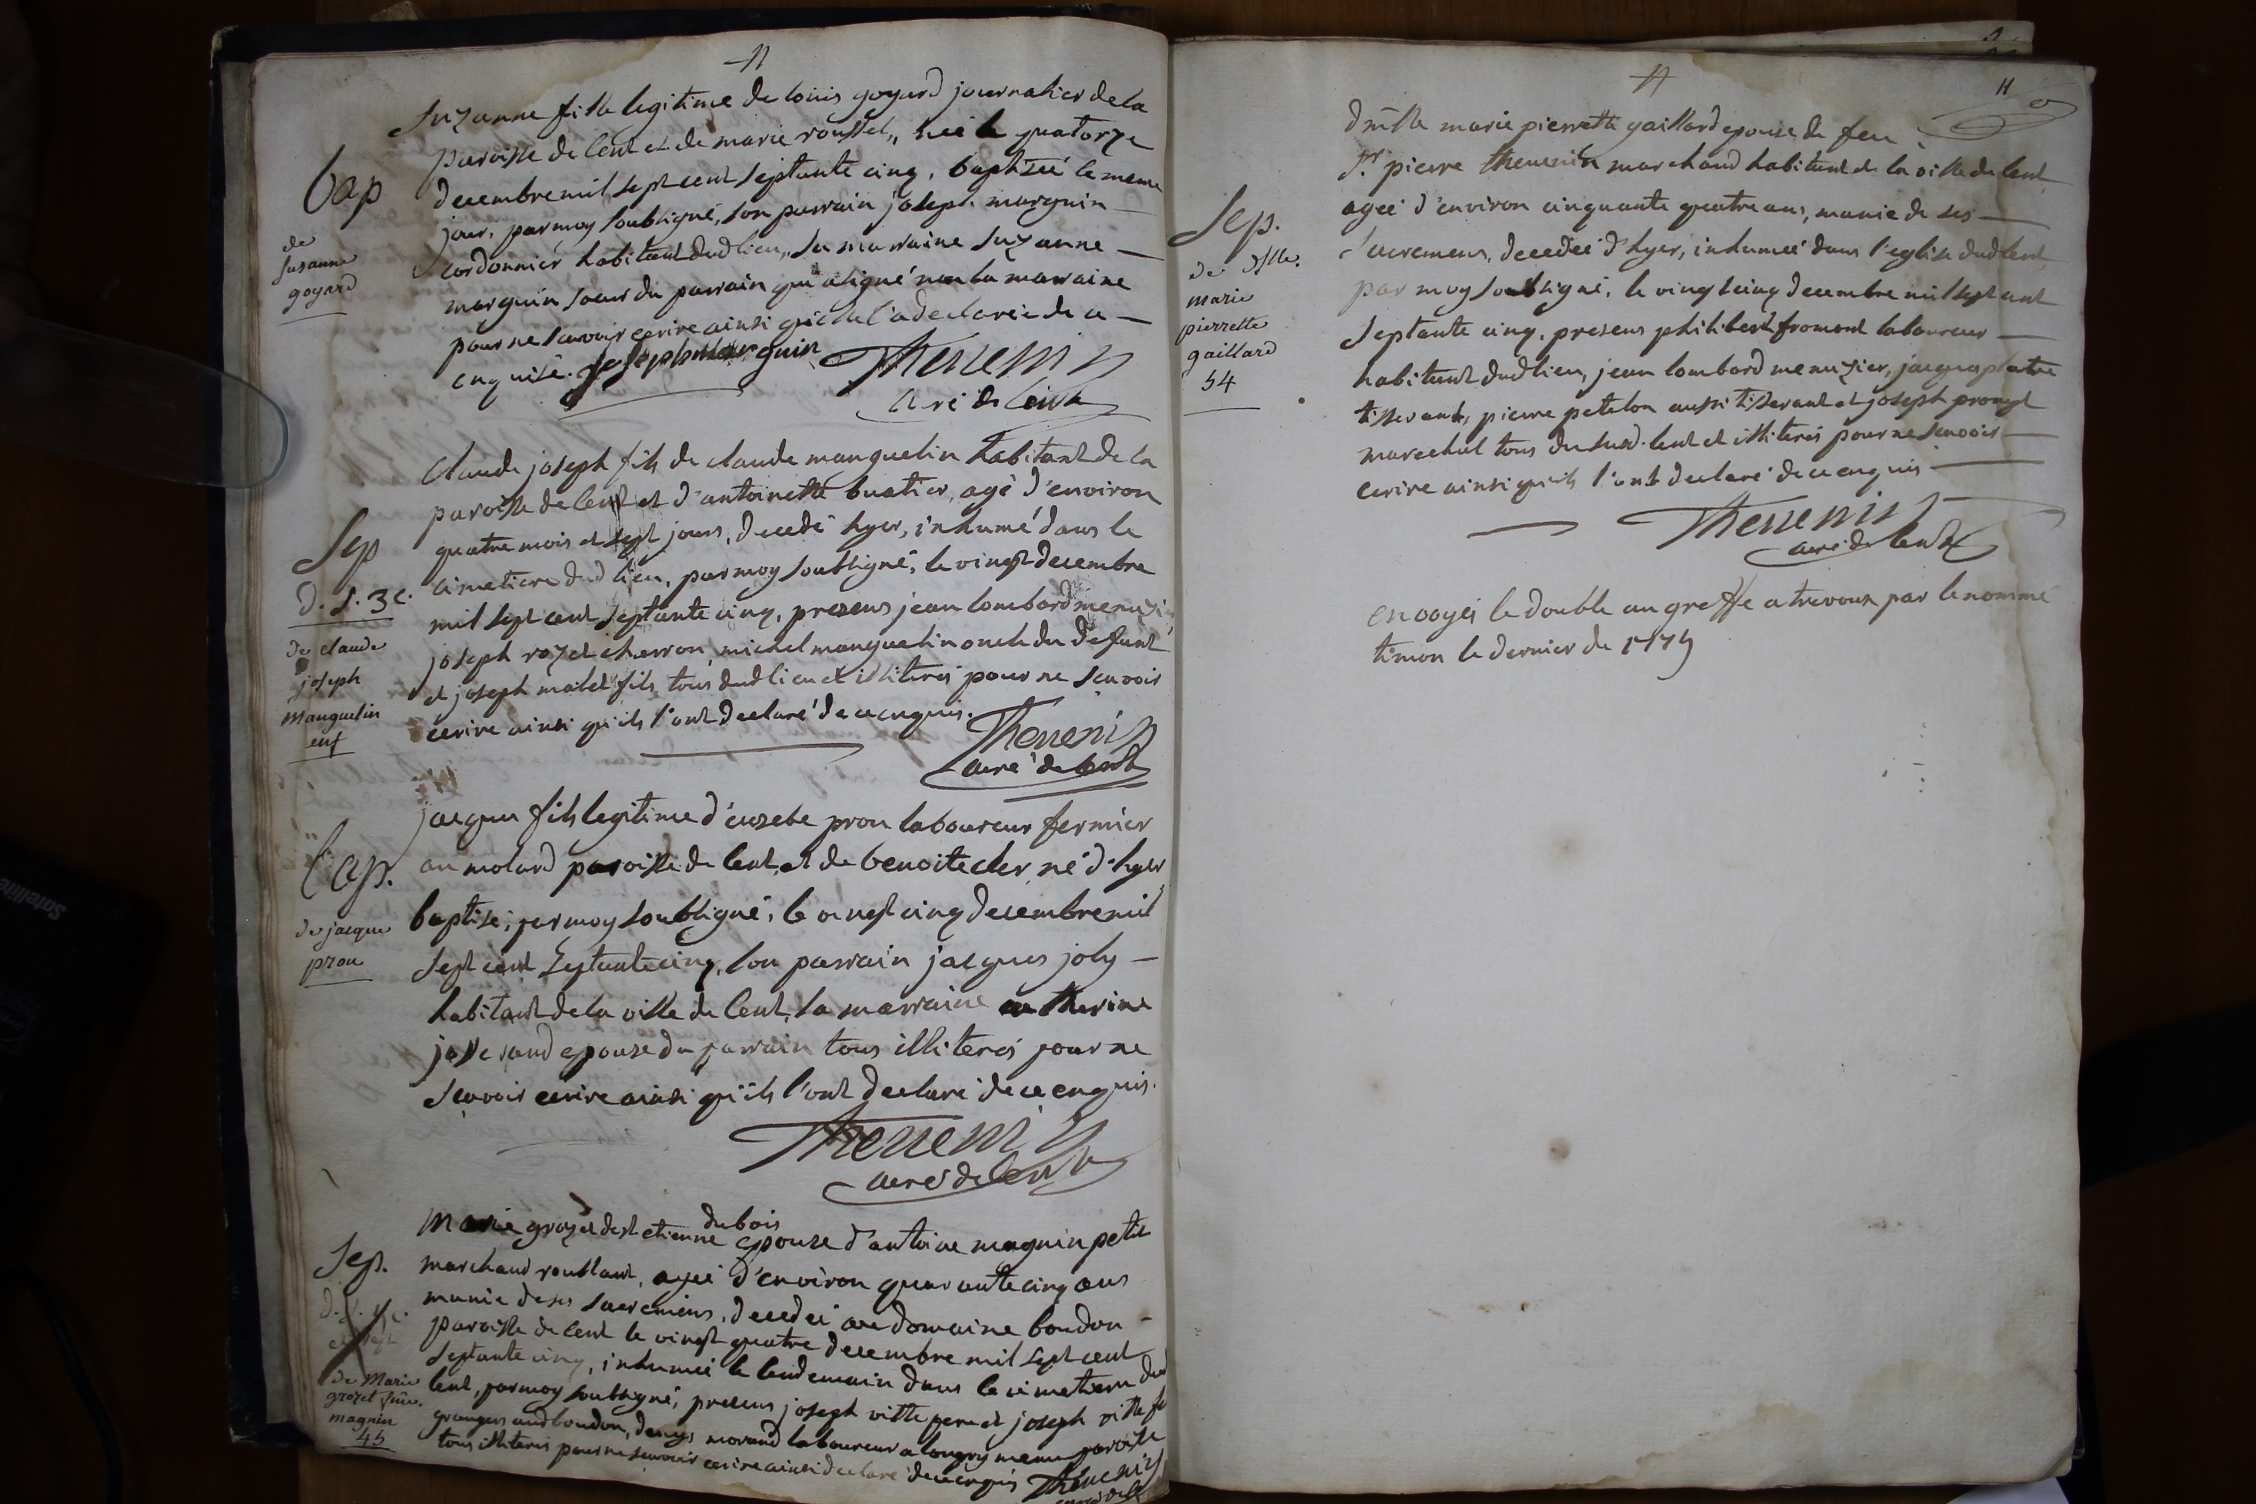 Suzanne fille legitime de loüis goyard journalier de la
paroisse de lent et de marie roussel, neé le quatorze
decembre mil sept cent septante cinq, baptizeé le meme
jour, par moy soubsigné, son parrain joseph marguin
cordonnier habitant dud lieu, sa marraine suzanne
marguin soeur du parrain qui a signé non la marraine
pour ne scavoir ecrire ainsi qu'elle l'a declareé de ce
enquise. joseph marguin Thevenin
curé de lent
bap
de
susanne
goyard
claude joseph fils de claude manguelin habitant de la
paroisse de lent et d'antoinette buatier, agé d'environ
quatre mois et sept jours, decedé hyer, inhumé dans le
cimetiere dud lieu, par moy soubsigné, le vingt decembre
mil sept cent septante cinq, presens jean lombard menuzier
joseph rozet charron, michel manguelin oncle du defunt
et joseph maret fils tous dud lieu et illiterés pour ne scavoir
ecrire ainsi qu'ils l'ont declaré de ce enquis.
Thevenin
curé de lent
Sep
d. s. 3 c.
de claude
joseph
manguelin
enf
jacques fils legitime d'euzebe prou laboureur fermier
au molard paroisse de lent, et de benoite cler né d'hyer
baptisé, par moy soubsigné, le vingt cinq decembre mil
sept cent septante cinq, son parrain jacques joly
habitant de la ville de lent, sa marraine catherine
josserand epouse du parrain tous illiterés pour ne
scavoir ecrire ainsi qu'ils l'ont declaré de ce enquis.
Thevenin
curé de lent
bap.
de jacque
prou
marie grozet de st etienne dubois epouse d'antoine magnin petit
marchand roullant, ageé d'environ quarante cinq ans
munie de ses sacremens, decedeé au domaine boudon
paroisse de lent le vingt quatre decembre mil sept cent
septante cinq, inhumeé le lendemain dans le cimetiere dud
lent, par moy soubsigné, presens joseph vitte pere et joseph vitte fils
grangers aud boudon, denys morand laboureur a longris meme paroisse
tous illiterés pour ne scavoir ecrire ainsi declaré de ce enquis Thevenin
curé de lent
Sep.
de Marie
grozet fme.
magnin
45
11
dmlle marie pierrette gaillard epouse de feu
sr. pierre thevenin marchand habitant de la ville de lent,
ageé d'environ cinquante quatre ans, munie de ses
sacremens, decedeé d'hyer, inhumeé dans l'eglise dud lent,
par moy soubsigné, le vingt cinq decembre mil sept cent
septante cinq, presens philibert froment laboureur
habitant dud lieu, jean lombard menuzier, jacques platre
tisserant, pierre petelon aussi tisserant et joseph prompt
marechal tous du sud. lent et illiterés pour ne scavoir
ecrire ainsi qu'ils l'ont declaré de ce enquis
Thevenin
curé de lent
Sep.
de dslle.
marie
pierrette
gaillard
54
envoyés le double au greffe a trevoux par le nommé
timon le dernier de 1775